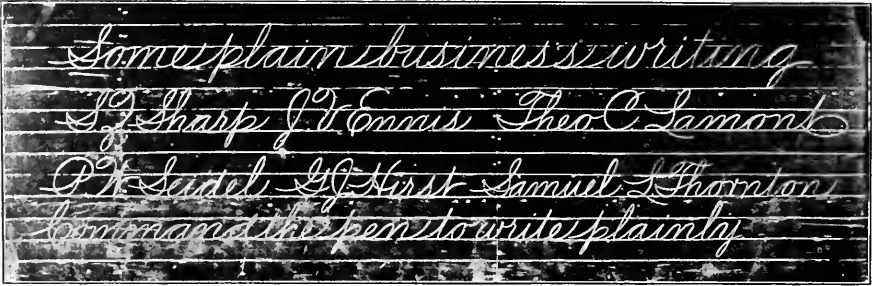 Some plain business writing
S Z Sharp J V Ennis Theo C Lamont
P W Seidel G J Hirst Samuel L Thornton
Command the pen to write plainly